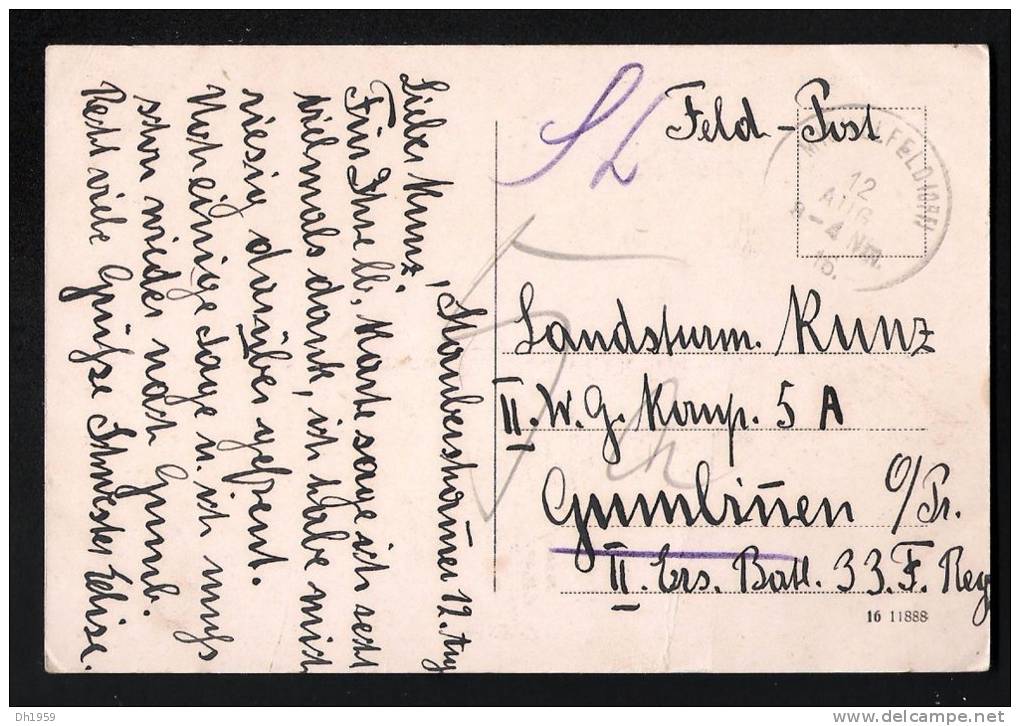 Feld-Post
S L
12
AUG
3-4 Nm.
16.
Landsturm. Kunz
II. W. G. Komp. 5 A
Gumbinnen O/Pr.
II. Ers. Batl. 33. F. Reg
16 11888
12. Aug
Lieber Kunz.
Für Ihre lb. Karte sage ich sehr
vielmals dank, ich habe mich
riesig darüber gefreut.
Noch einige Tage u. ich muß
schon wieder nach Gumb.
Recht viele Grüße Schwester Elise.
DH1959
delcampe.net